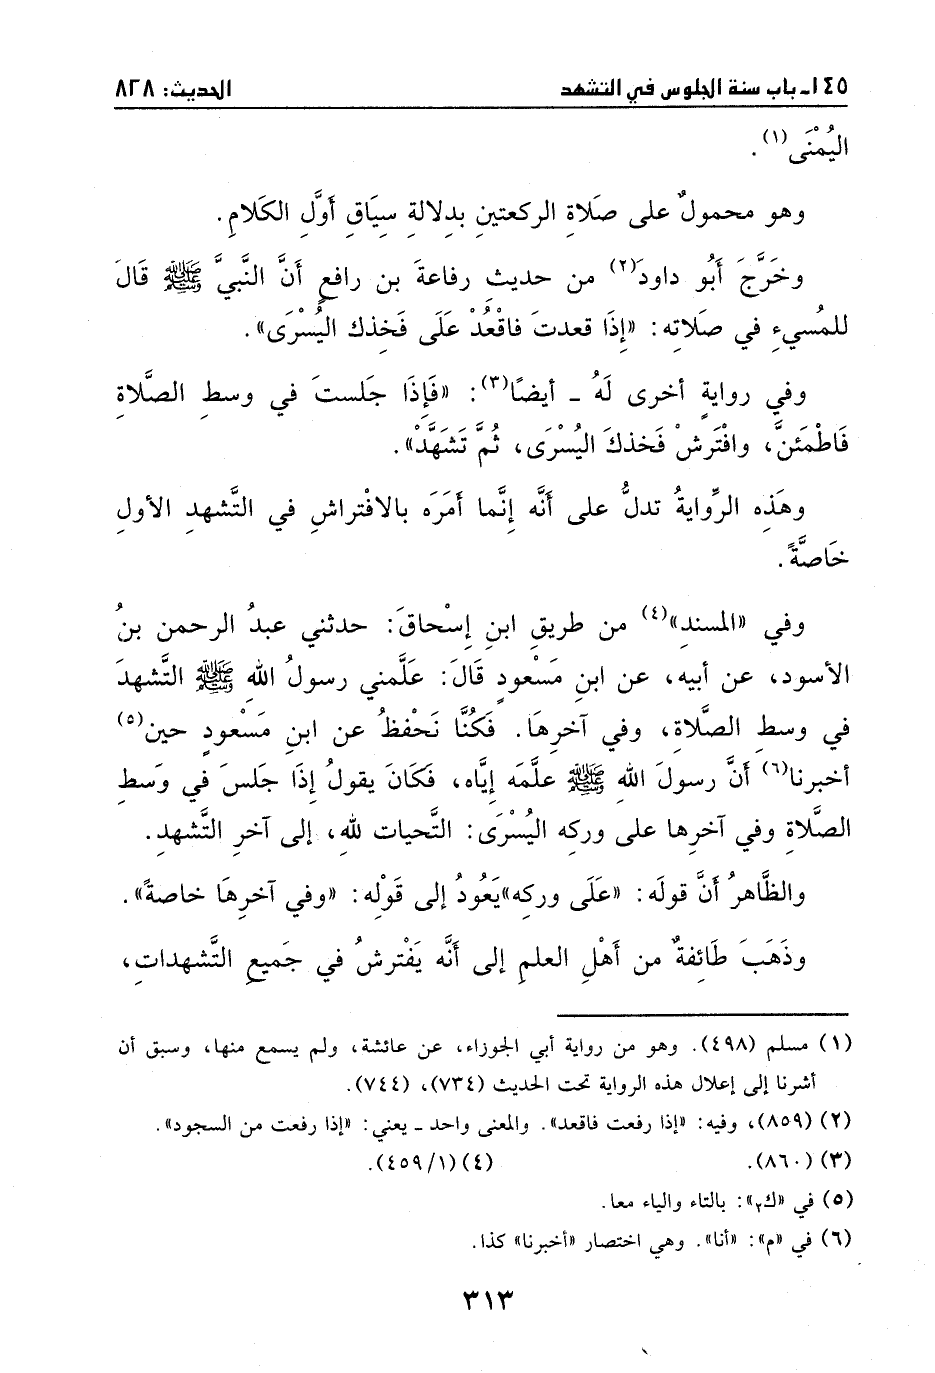 ١٤٥ـ باب سنة الجلوس في التشهد الحديث: ٨٢٨
اليُمْنَى(١).
وهو محمولٌ على صلَاةِ الركعتينِ بدِلالةِ سيَاقِ أوَّلِ الكَلامِ.
وخَرَّجَ أَبُو داودَ(٢) من حديثِ رفاعةَ بن رافعٍ أَنَّ النَّبيَّ ﷺ قَالَ
للمُسيءِ في صلَاته: «إِذَا قعدتَ فاقْعُدْ عَلَى فَخذك اليُسْرَى».
وفي روايةٍ أخرى لَهُ ـ أيضًا(٣): «فَإِذَا جَلستَ في وسطِ الصَّلاةِ
فَاطْمَئنَّ، وافْتَرشْ فَخذكَ اليُسْرَى، ثُمَّ تَشَهَّدْ».
وهَذِه الرِّوايةُ تدلُّ على أَنَّه إِنَّما أمَرَه بالافْتراشِ في التَّشهدِ الأولِ
خَاصَّةً.
وفي «المسندِ»(٤) من طريقِ ابنِ إِسْحاقَ: حدثني عبدُ الرحمن بنُ
الأسود، عن أبيه، عن ابنِ مَسْعودٍ قَالَ: عَلَّمني رسولُ اللهِ ﷺ التَّشهدَ
في وسطِ الصَّلاةِ، وفي آخرِهَا. فَكُنَّا نَحْفظُ عن ابنِ مَسْعودٍ حين(٥)
أخبرنا(٦) أَنَّ رسولَ اللهِ ﷺ علَّمَه إِيَّاه، فَكَانَ يقولُ إِذَا جَلسَ في وَسطِ
الصَّلاةِ وفي آخرِها على وركه اليُسْرَى: التَّحيات للهِ، إلى آخرِ التَّشهدِ.
والظَّاهرُ أَنَّ قولَه: «عَلَى وركِه»يَعُودُ إلى قَوْلِه: «وفي آخرِهَا خاصةً».
وذَهَبَ طَائِفةٌ من أَهْلِ العلمِ إلى أَنَّه يَفْترشُ في جَميعِ التَّشهداتِ،
(١) مسلم (٤٩٨). وهو من رواية أبي الجوزاء، عن عائشة، ولم يسمع منها، وسبق أن
أشرنا إلى إعلال هذه الرواية تحت الحديث (٧٣٤)، (٧٤٤).
(٢) (٨٥٩)، وفيه: «إذا رفعت فاقعد». والمعنى واحد ـ يعني: «إذا رفعت من السجود».
(٣) (٨٦٠). (٤) (١/ ٤٥٩).
(٥) في «ك٢»: بالتاء والياء معا.
(٦) في «م»: «أنا». وهي اختصار «أخبرنا» كذا.
٣١٣